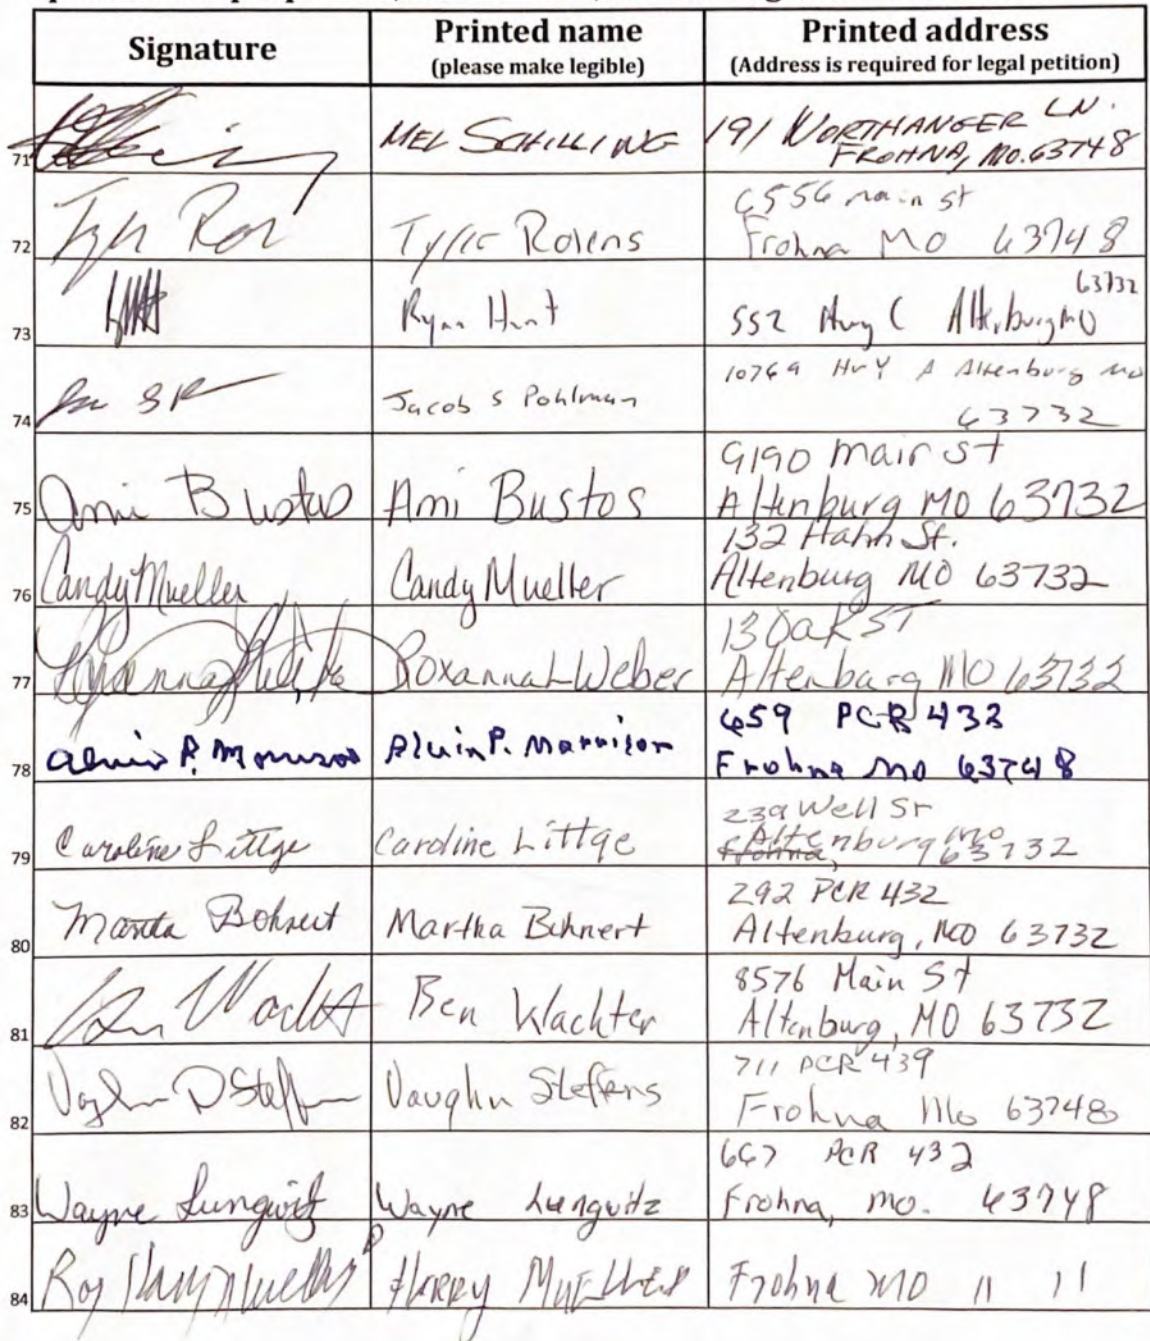 Signature
Printed name
(please make legible)
Printed address
(Address is required for legal petition)
71
MEL SCHILLING
191 NORTHANGER LN.
FROHNA, MO. 63748
72
Tyler Rolens
6556 main st
Frohna MO 63748
73
Ryan Hunt
63732
552 Hwy C Altenburg MO
74
Jacob S Pohlman
10769 HwY A Altenburg mo
63732
75
Ami Bustos
Ami Bustos
9190 Main st
Altenburg MO 63732
76
Candy Mueller
Candy Mueller
132 Hahn St.
Altenburg MO 63732
77
Roxanna L Weber
13 Oak ST
Altenburg MO 63732
78
Alvin P. Morrison
Alvin P. Marrison
659 PCR 433
Frohna MO 63748
79
Caroline Littge
Caroline Littge
239 Well St
Altenburg Mo
Frohna, 63732
80
Martha Bohnert
Martha Bohnert
292 PCR 432
Altenburg, MO 63732
81
Ben Wachter
Ben Wachter
8576 Main St
Altenburg, MO 63732
82
Vaughn D Steffens
Vaughn Steffens
711 PCR 439
Frohna Mo 63748
83
Wayne Lungwitz
Wayne Lungwitz
667 PCR 432
Frohna, mo. 63748
84
Roy Harry Mueller
HARRY MUELLER
Frohna MO 11 11